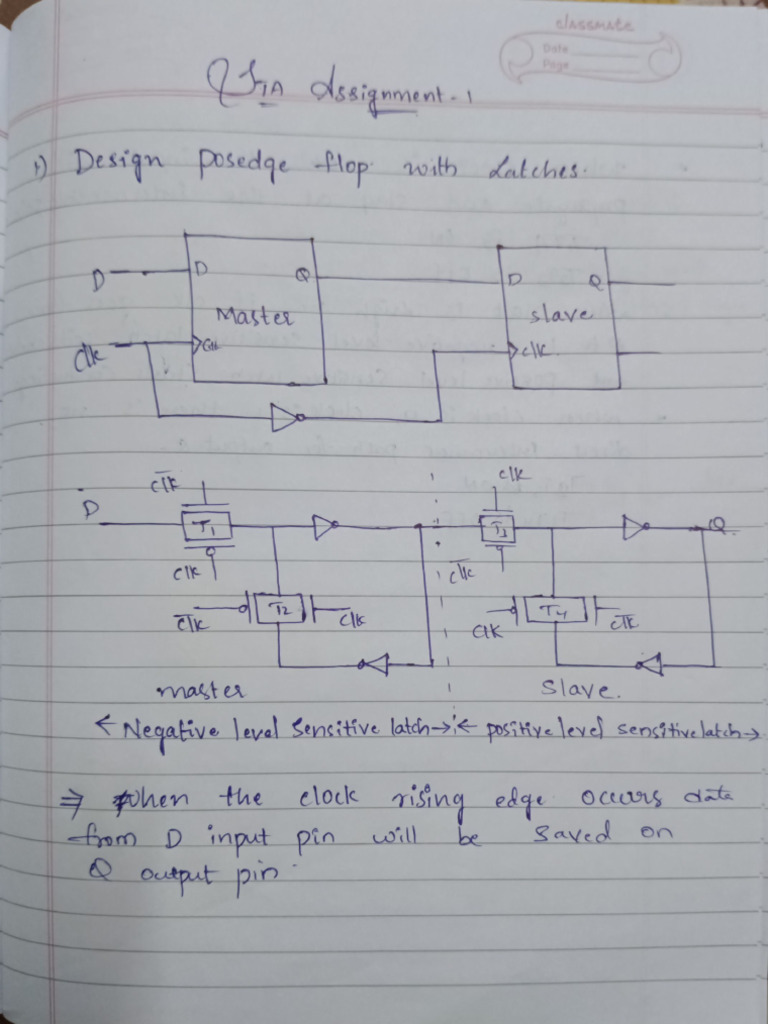 classmate
Date
Page
STA Assignment-1
1) Design posedge flop with Latches.
D
D Q
Master
Clk
Clk
D Q
slave
clk.
D
c̅l̅k̅
T1
clk
c̅l̅k̅
T2
clk
clk
T3
c̅l̅k̅
clk
T4
c̅l̅k̅
Q
master
Slave.
← Negative level Sensitive latch → ← positive level sensitive latch →
⇒ When the clock rising edge occurs data
from D input pin will be saved on
Q output pin.